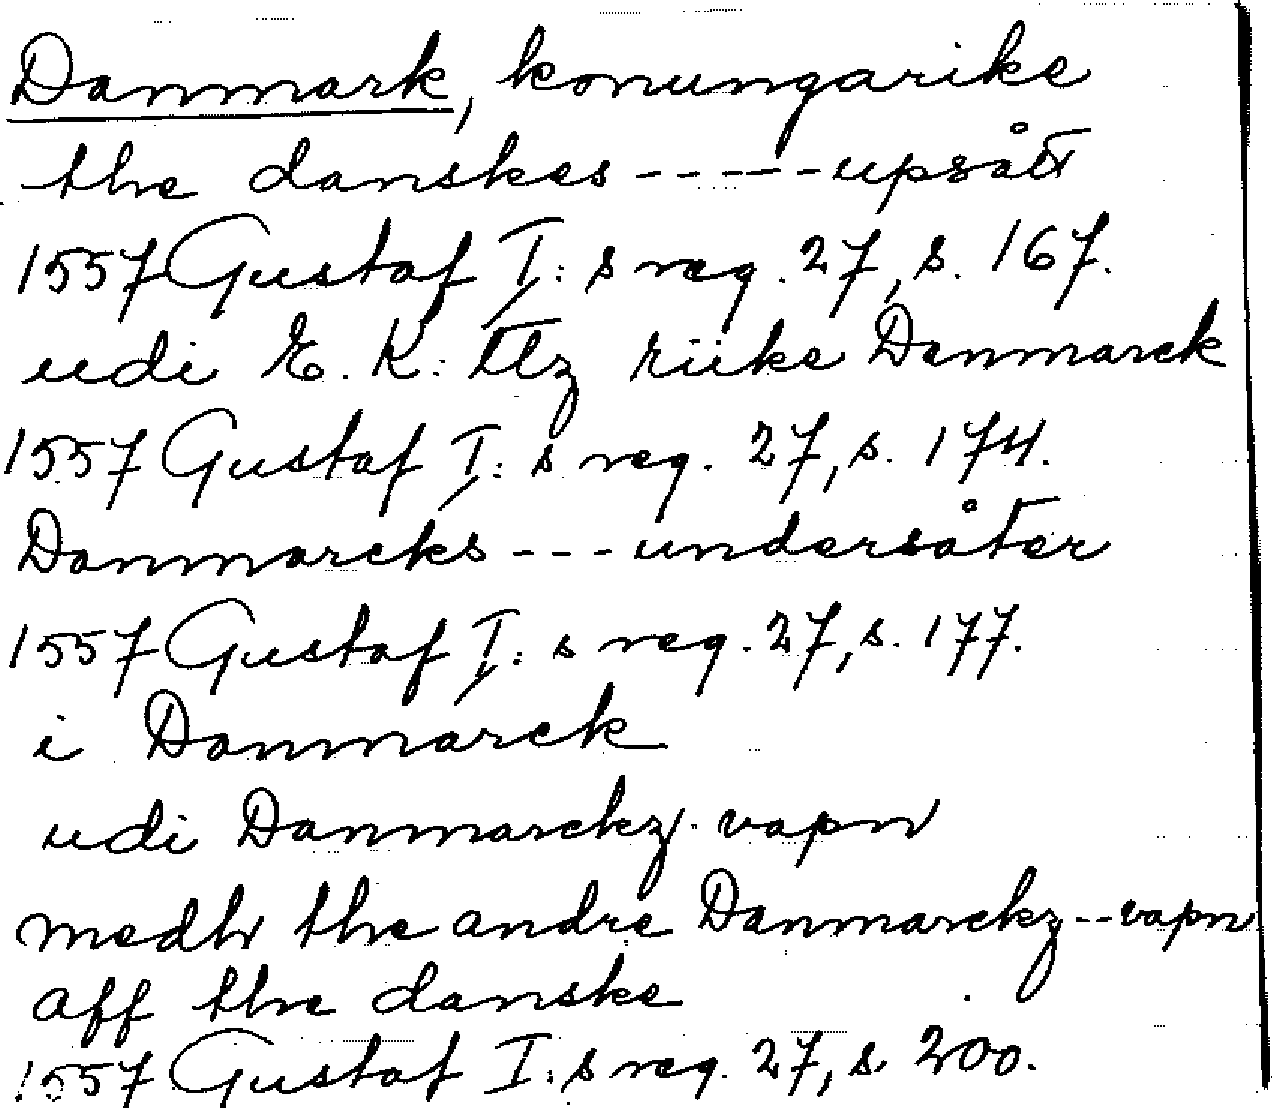 Danmark, konungarike
the danskes ----- upsått
1557 Gustaf I:s reg. 27, s. 167.
udi E. K: Ttz riike Danmarck
1557 Gustaf I:s reg. 27, s. 174.
Danmarcks --- undersåter
1557 Gustaf I:s reg. 27, s. 177.
i Danmarck
udi Danmarckz vapn
medh the andre Danmarckz -- vapn
aff the danske
1557 Gustaf I:s reg. 27, s. 200.